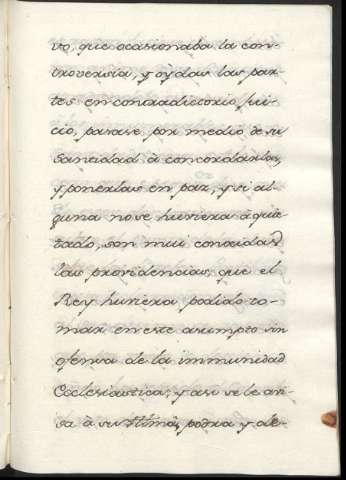 vo, que ocasionaba la con-
troversia, y oydas las par-
tes en contradictorio jui-
cio, parase por medio de su
Santidad à concordarlas,
y ponerlas en paz, y si al-
guna no se huviera àquie-
tado, son mui conocidas
las providencias, que el
Rey huviera podido to-
mar en este asumpto sin
ofensa de la immunidad
Eclesiastica; y asi se le avi-
sa à su Illmâ, podrá y de-